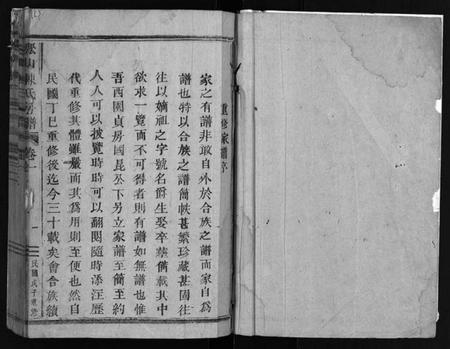 重修家譜序
家之有譜非敢自外於合族之譜而家自爲
譜也特以合族之譜簡帙甚繁珍藏甚固往
往以嫡祖之字號名爵生娶卒葬備載其中
欲求一覽而不可得者則有譜如無譜也惟
吾西園貞房國昆公下另立家譜至簡至約
人人可以披覽時時可以翻閱隨時添注歷
代重修其體雖嚴而其爲用則至便也然自
民國丁巳重修後迄今三十載矣會合族續
陳氏房譜
卷一
一
民國戊子重修